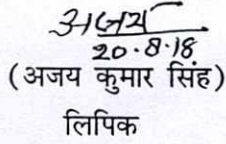 अजय
20.8.18
(अजय कुमार सिंह)
लिपिक